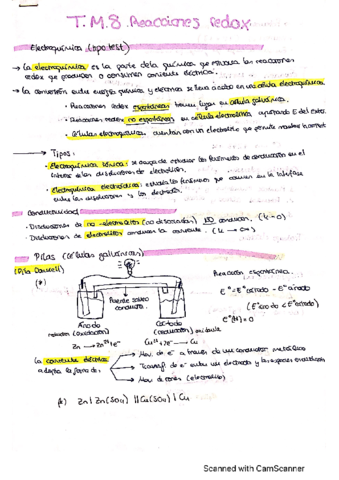 T.M.8. Reacciones redox
Electroquímica (apo test)
→ La electroquímica es la parte de la química que estudia las reacciones
redox que producen o consumen corriente eléctrica.
→ La conversión entre energía química y eléctrica se lleva a cabo en una célula electroquímica
• Reacciones redox espontáneas tienen lugar en célula galvánica.
• Reacciones redox no espontáneas en célula electrolítica, aportando E del exter.
• Células electroquímicas cuentan con un electrolito que permite
→ Tipos:
• Electroquímica iónica: se encarga de estudiar los fenómenos de conducción en el
de las disoluciones de electrolitos.
• Electroquímica electródica: estudia los fenómenos que ocurren en la interfase
entre las disoluciones y los electrodos.
Conductividad
• Disoluciones de no-electrolitos (no disociados) NO conducen. (k → 0)
• Disoluciones de electrolitos conducen la corriente. (k → ∞)
Pilas (Células galvánicas)
(Pila Daniell)
(*)
Reacción espontánea.
Puente salino
conducto.
E° = E°cátodo - E°ánodo
(E°cátodo < E°ánodo)
E°(H+) = 0
Ánodo
(oxidación)
Cátodo
(reducción)
Zn → Zn²⁺ + e⁻
Cu²⁺ + 2e⁻ → Cu
La corriente eléctrica
adopta la forma de:
→ Mov. de e⁻ a través de un conductor metálico
→ Transf. de e⁻ entre un electrodo y la
→ Mov de iones (electrolito)
(*) Zn | Zn(SO₄) || Cu(SO₄) | Cu
Scanned with CamScanner